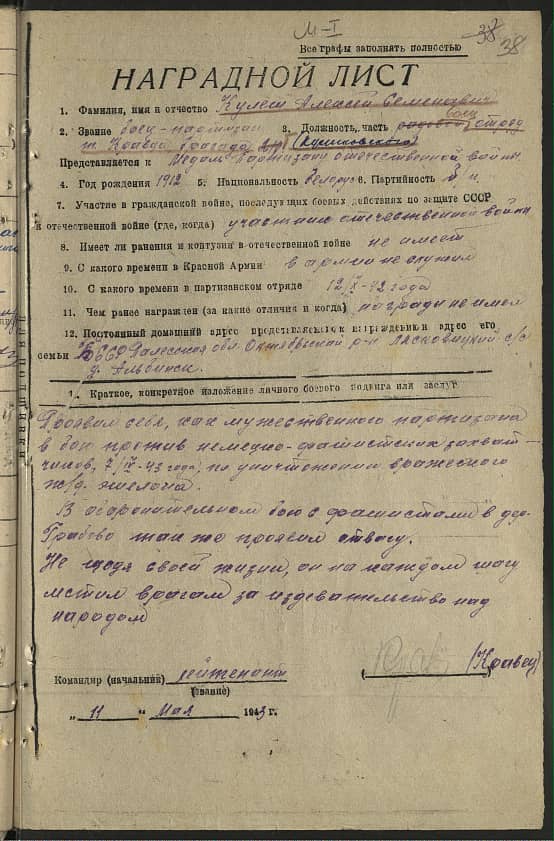 М-I
38
38
Все графы заполнять полностью
НАГРАДНОЙ ЛИСТ
1. Фамилия, имя и отчество Кулеш Алексей Семенович
2. Звание боец-партизан 3. Должность, часть боец отряд
т. Кравца бригада
Представляется к Медали Партизану отечественной войны
4. Год рождения 1912 5. Национальность белорус 6. Партийность б/п
7. Участие в гражданской войне, последующих боевых действиях по защите СССР
и отечественной войне (где, когда) участник отечественной войны
8. Имеет ли ранения и контузии в отечественной войне не имеет
9. С какого времени в Красной Армии в армии не служил
10. С какого времени в партизанском отряде 12/IX-42 года
11. Чем ранее награжден (за какие отличия и когда) награди не имел
12. Постоянный домашний адрес представляемого к награждению и адрес его
семьи Полесская обл. Октябрьский р-н Ласковицкий с/с
д. Альбинск
1. Краткое, конкретное изложение личного боевого подвига или заслуг
Проявил себя, как мужественного партизана
в бою против немецко-фашистских захват-
чиков, 7/IV-43 года, по уничтожению вражеского
ж/д. эшелона.
В оборонительном бою с фашистами в дер.
Грабово так же проявил отвагу.
Не щадя своей жизни, он на каждом шагу
мстил врагам за издевательство над
народом
Командир (начальник) лейтенант (Кравец)
(звание)
„11“ Мая 1943 г.